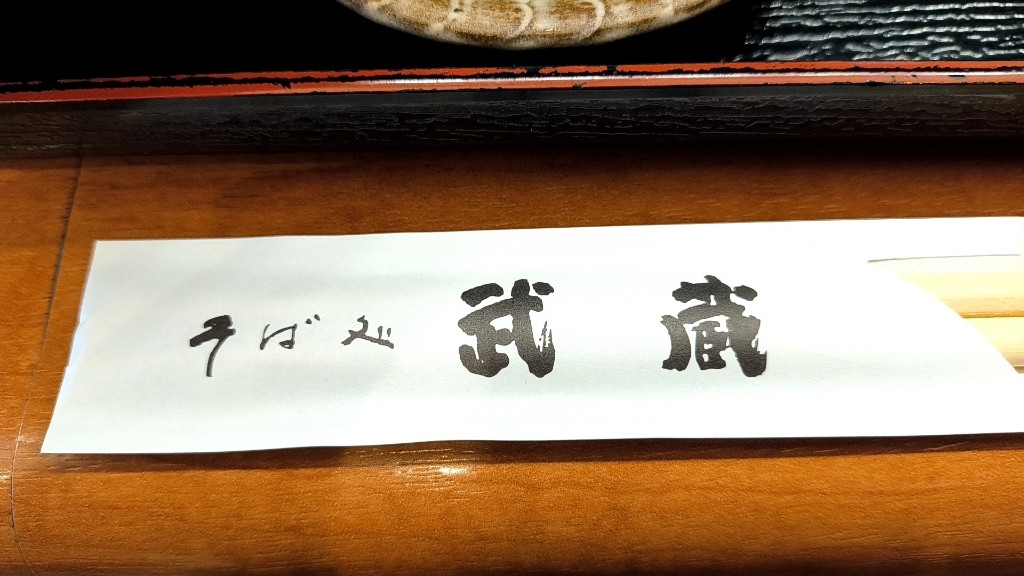 そば処 武蔵